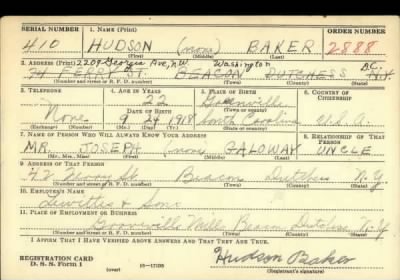 SERIAL NUMBER 1. NAME (Print) ORDER NUMBER
410 HUDSON (none) BAKER 2888
(First) (Middle) (Last)
2. ADDRESS (Print) 2209 Georgia Ave, N.W. Washington D.C.
74 FERRY ST. BEACON DUTCHESS N.Y.
(Number and street or R. F. D. number) (Town) (County) (State)
3. TELEPHONE 4. AGE IN YEARS 5. PLACE OF BIRTH 6. COUNTRY OF CITIZENSHIP
22 Greenville
DATE OF BIRTH (Town or county)
None 9 24 1918 South Carolina U.S.A.
(Exchange) (Number) (Mo.) (Day) (Yr.) (State or country)
7. NAME OF PERSON WHO WILL ALWAYS KNOW YOUR ADDRESS 8. RELATIONSHIP OF THAT PERSON
MR. JOSEPH (none) GALOWAY UNCLE
(Mr., Mrs., Miss) (First) (Middle) (Last)
9. ADDRESS OF THAT PERSON
42 St. Beacon Dutchess N.Y.
(Number and street or R. F. D. number) (Town) (County) (State)
10. EMPLOYER'S NAME
Lewittes & Sons
11. PLACE OF EMPLOYMENT OR BUSINESS
Groveville Mill Beacon Dutchess N.Y.
(Number and street or R. F. D. number) (Town) (County) (State)
I AFFIRM THAT I HAVE VERIFIED ABOVE ANSWERS AND THAT THEY ARE TRUE.
REGISTRATION CARD Hudson Baker
D. S. S. Form 1 (over) 16—17105 (Registrant's signature)